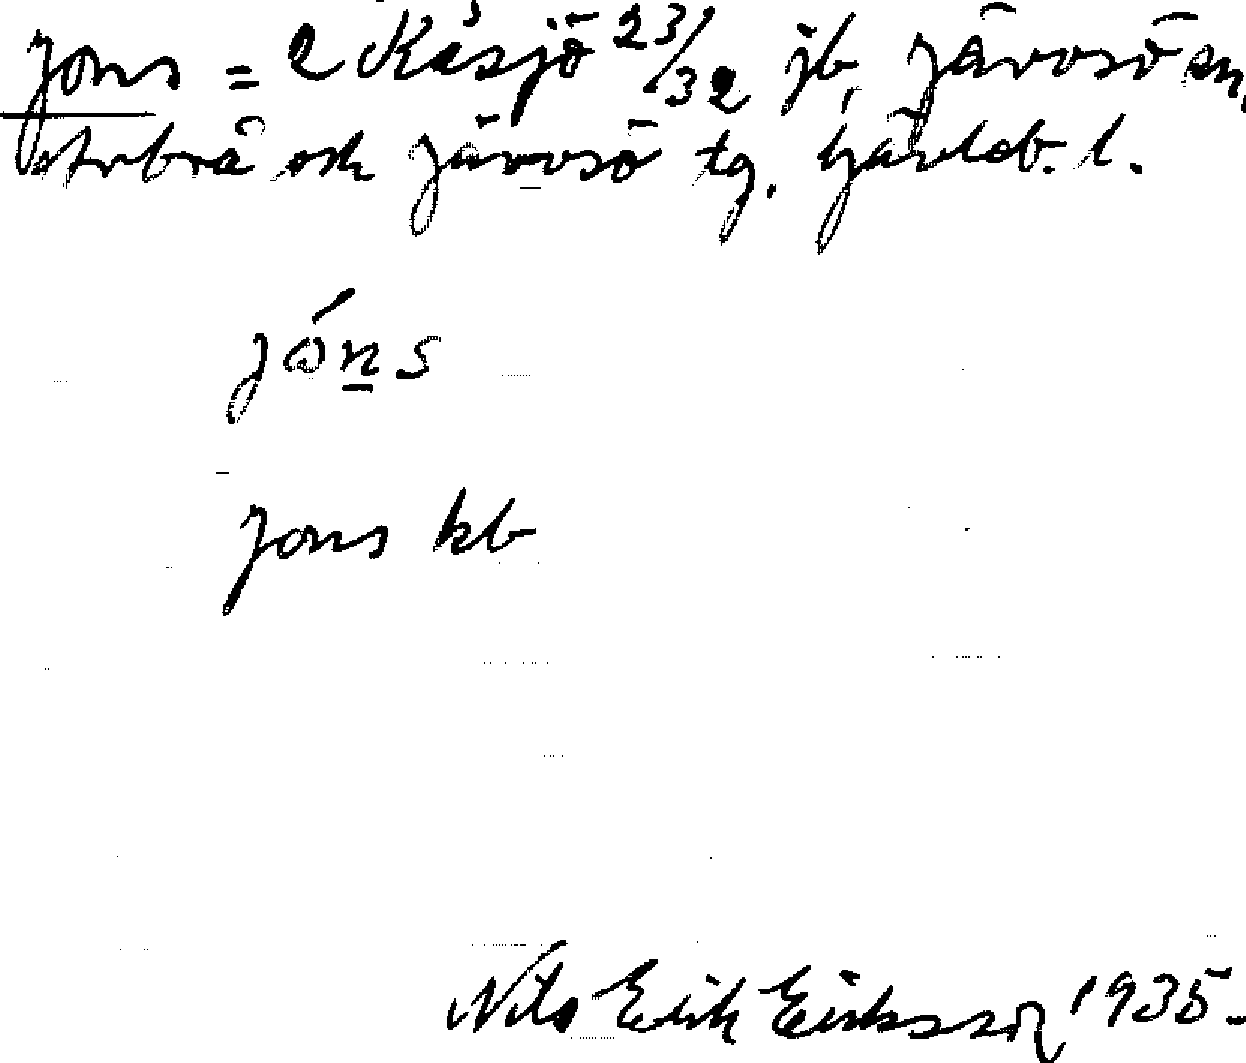 Jons = 2 Kåsjö 23/32 jb, Järvsö sn,
Arbrå och Järvsö tg. Gävleb. l.
jón̲s
Jons kb
Nils Erik Eriksson 1935.